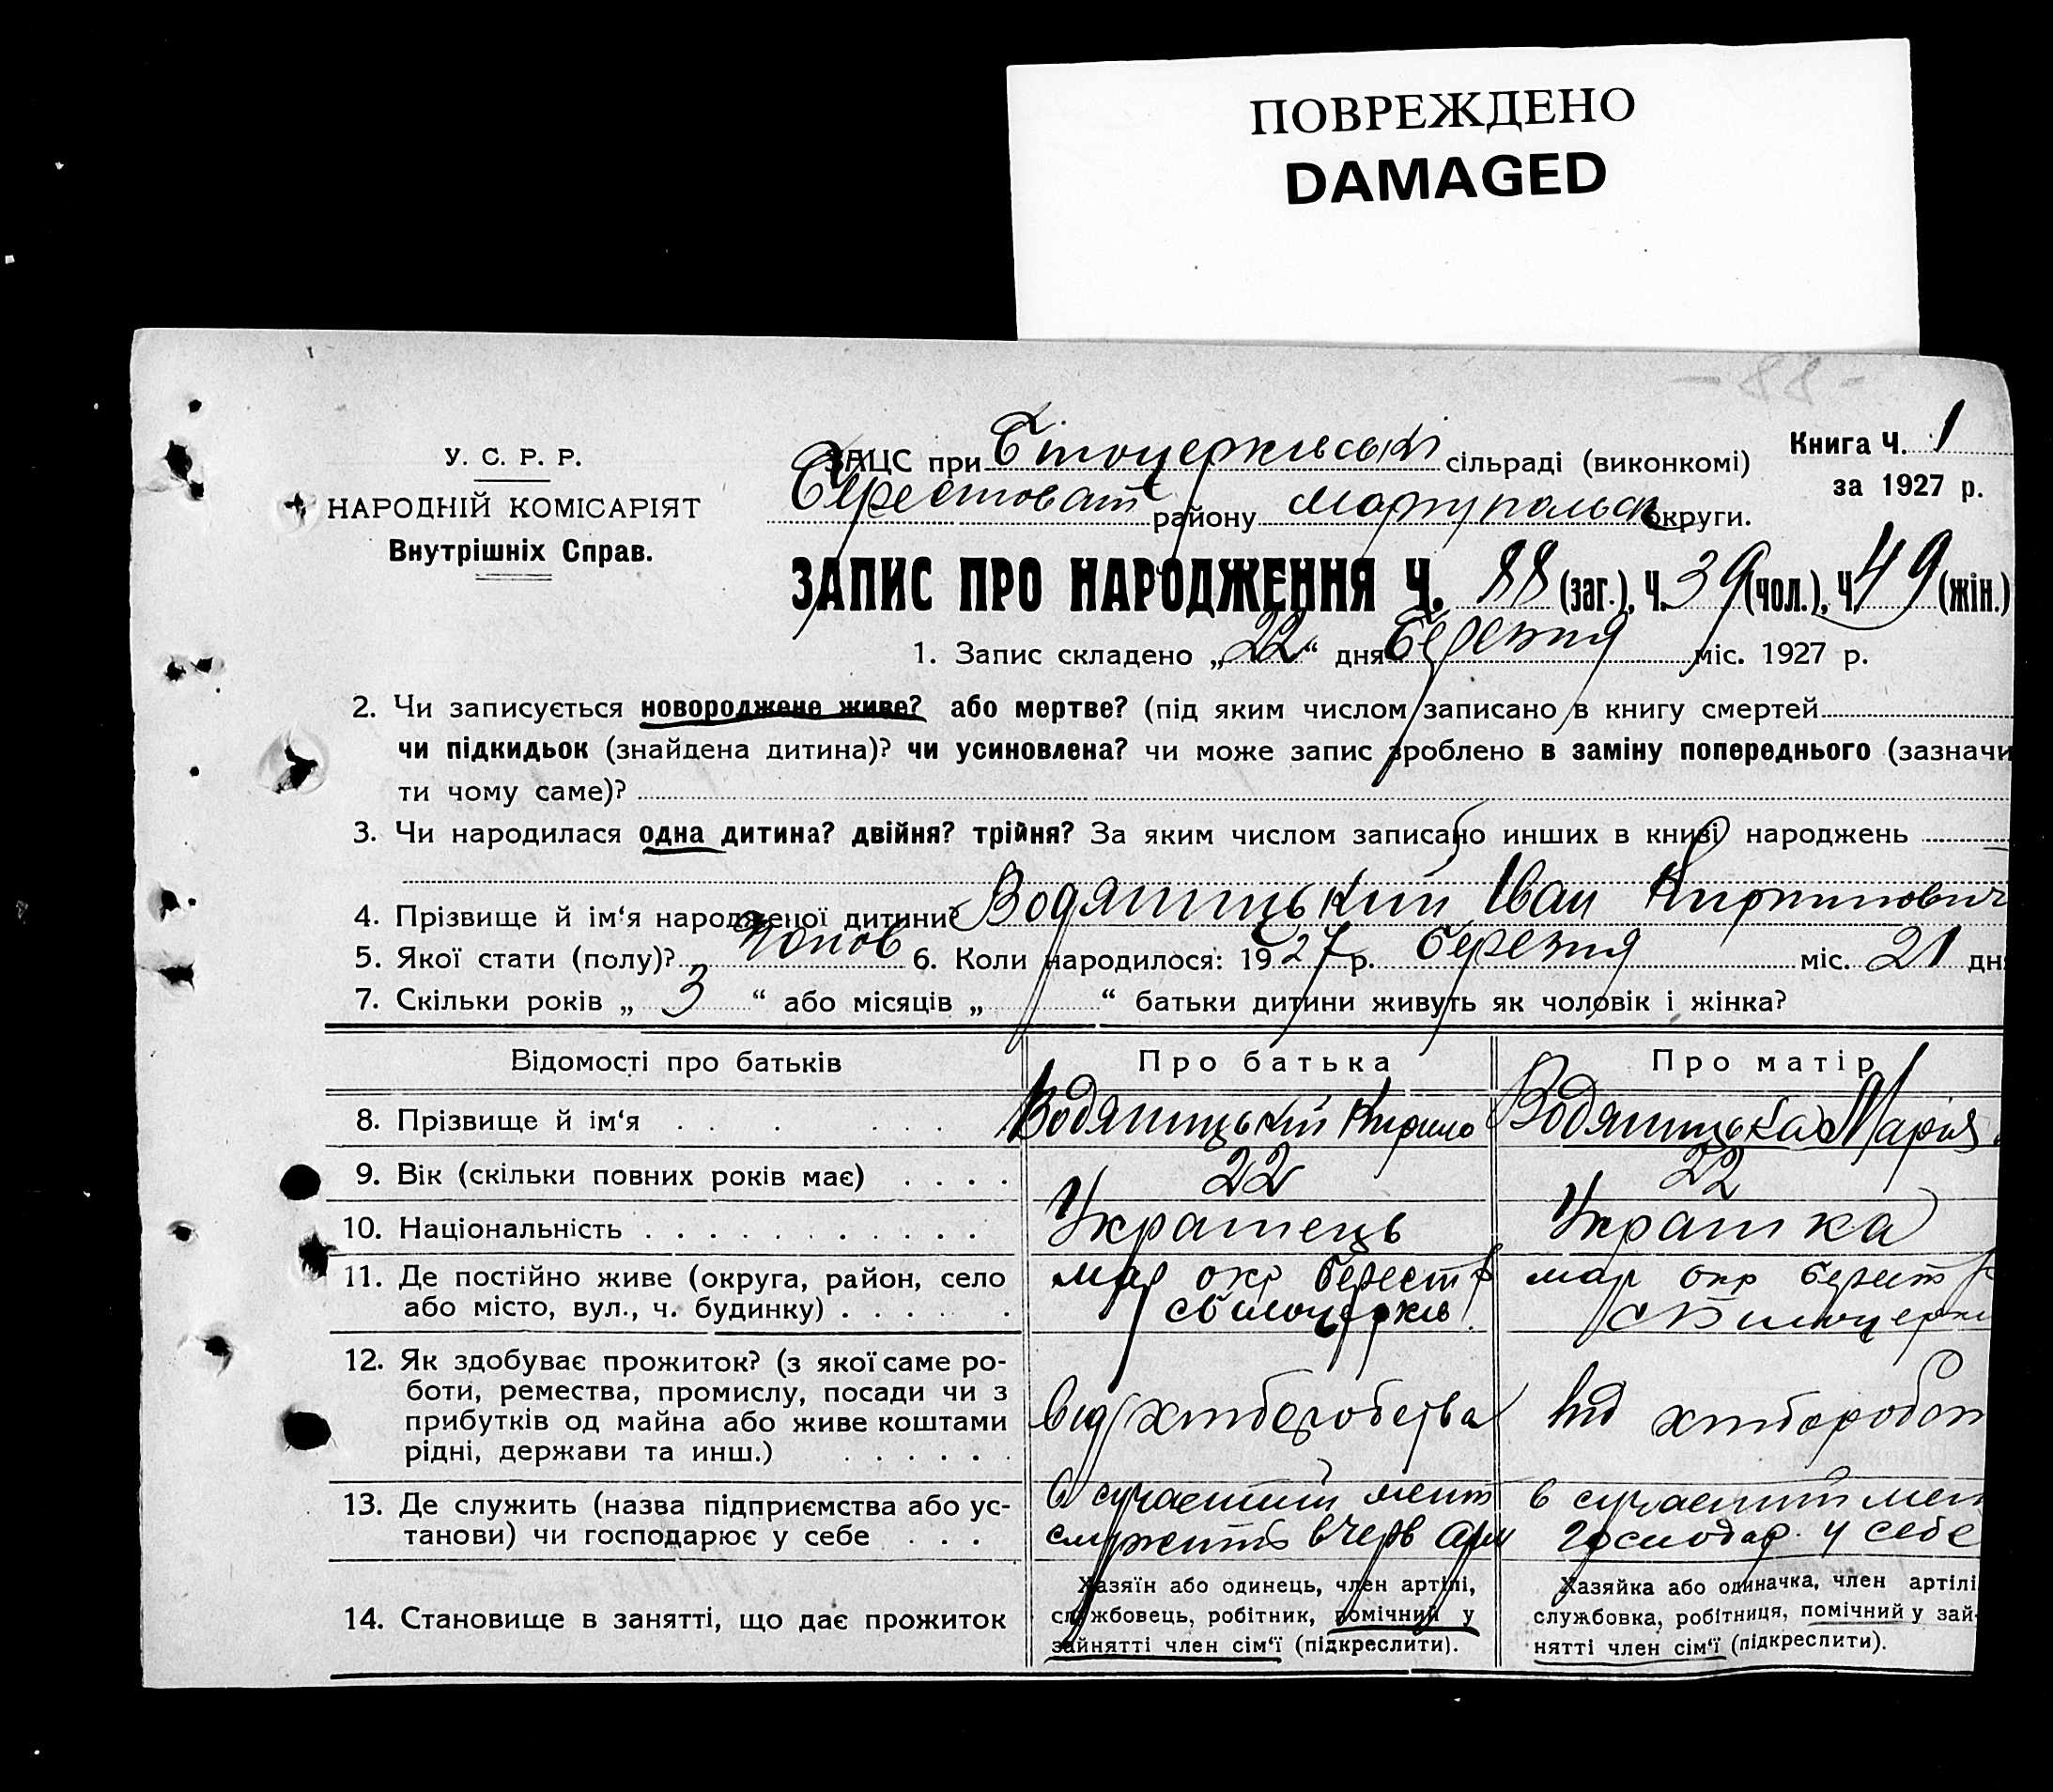 ПОВРЕЖДЕНО
DAMAGED
-88-
У. С. Р. Р.
НАРОДНІЙ КОМІСАРІЯТ
Внутрішніх Справ.
ЗАЦС при Білоцерківські сільраді (виконкомі)
Книга Ч. 1
за 1927 р.
Берестоват району Маріупольськ округи.
ЗАПИС ПРО НАРОДЖЕННЯ Ч. 88 (заг.), Ч. 39 (чол.), Ч 49 (жін.)
1. Запис складено „22“ дня березня міс. 1927 р.
2. Чи записується новороджене живе? або мертве? (під яким числом записано в книгу смертей
чи підкидьок (знайдена дитина)? чи усиновлена? чи може запис зроблено в заміну попереднього (зазначи
ти чому саме)?
3. Чи народилася одна дитина? двійня? трійня? За яким числом записано инших в книзі народжень
4. Прізвище й ім‘я народженої дитини? Водяницький Іван Кирилович
5. Якої стати (полу)? чолов 6. Коли народилося: 1927 р. березня міс. 21 дн
7. Скільки років „ 3 “ або місяців „ “ батьки дитини живуть як чоловік і жінка?
Відомості про батьків Про батька Про матір
8. Прізвище й ім‘я Водяницький Кирило Водяницька Марія
9. Вік (скільки повних років має) 22 22
10. Національність Українець Українка
11. Де постійно живе (округа, район, село мар окр берест р мар окр берест р
або місто, вул., ч. будинку) с Білоцерків с Білоцерк
12. Як здобуває прожиток? (з якої саме ро-
боти, ремества, промислу, посади чи з
прибутків од майна або живе коштами від хліборобства від хлібороб
рідні, держави та инш.)
13. Де служить (назва підприємства або ус- в сучасний мент в сучасний мен
танови) чи господарює у себе служить в Черв Арм господар. у себе
Хазяїн або одинець, член артілі, Хазяйка або одиначка, член артілі
14. Становище в занятті, що дає прожиток службовець, робітник, помічний у службовка, робітниця, помічний у зай-
зайнятті член сім‘ї (підкреслити). нятті член сім‘ї (підкреслити).